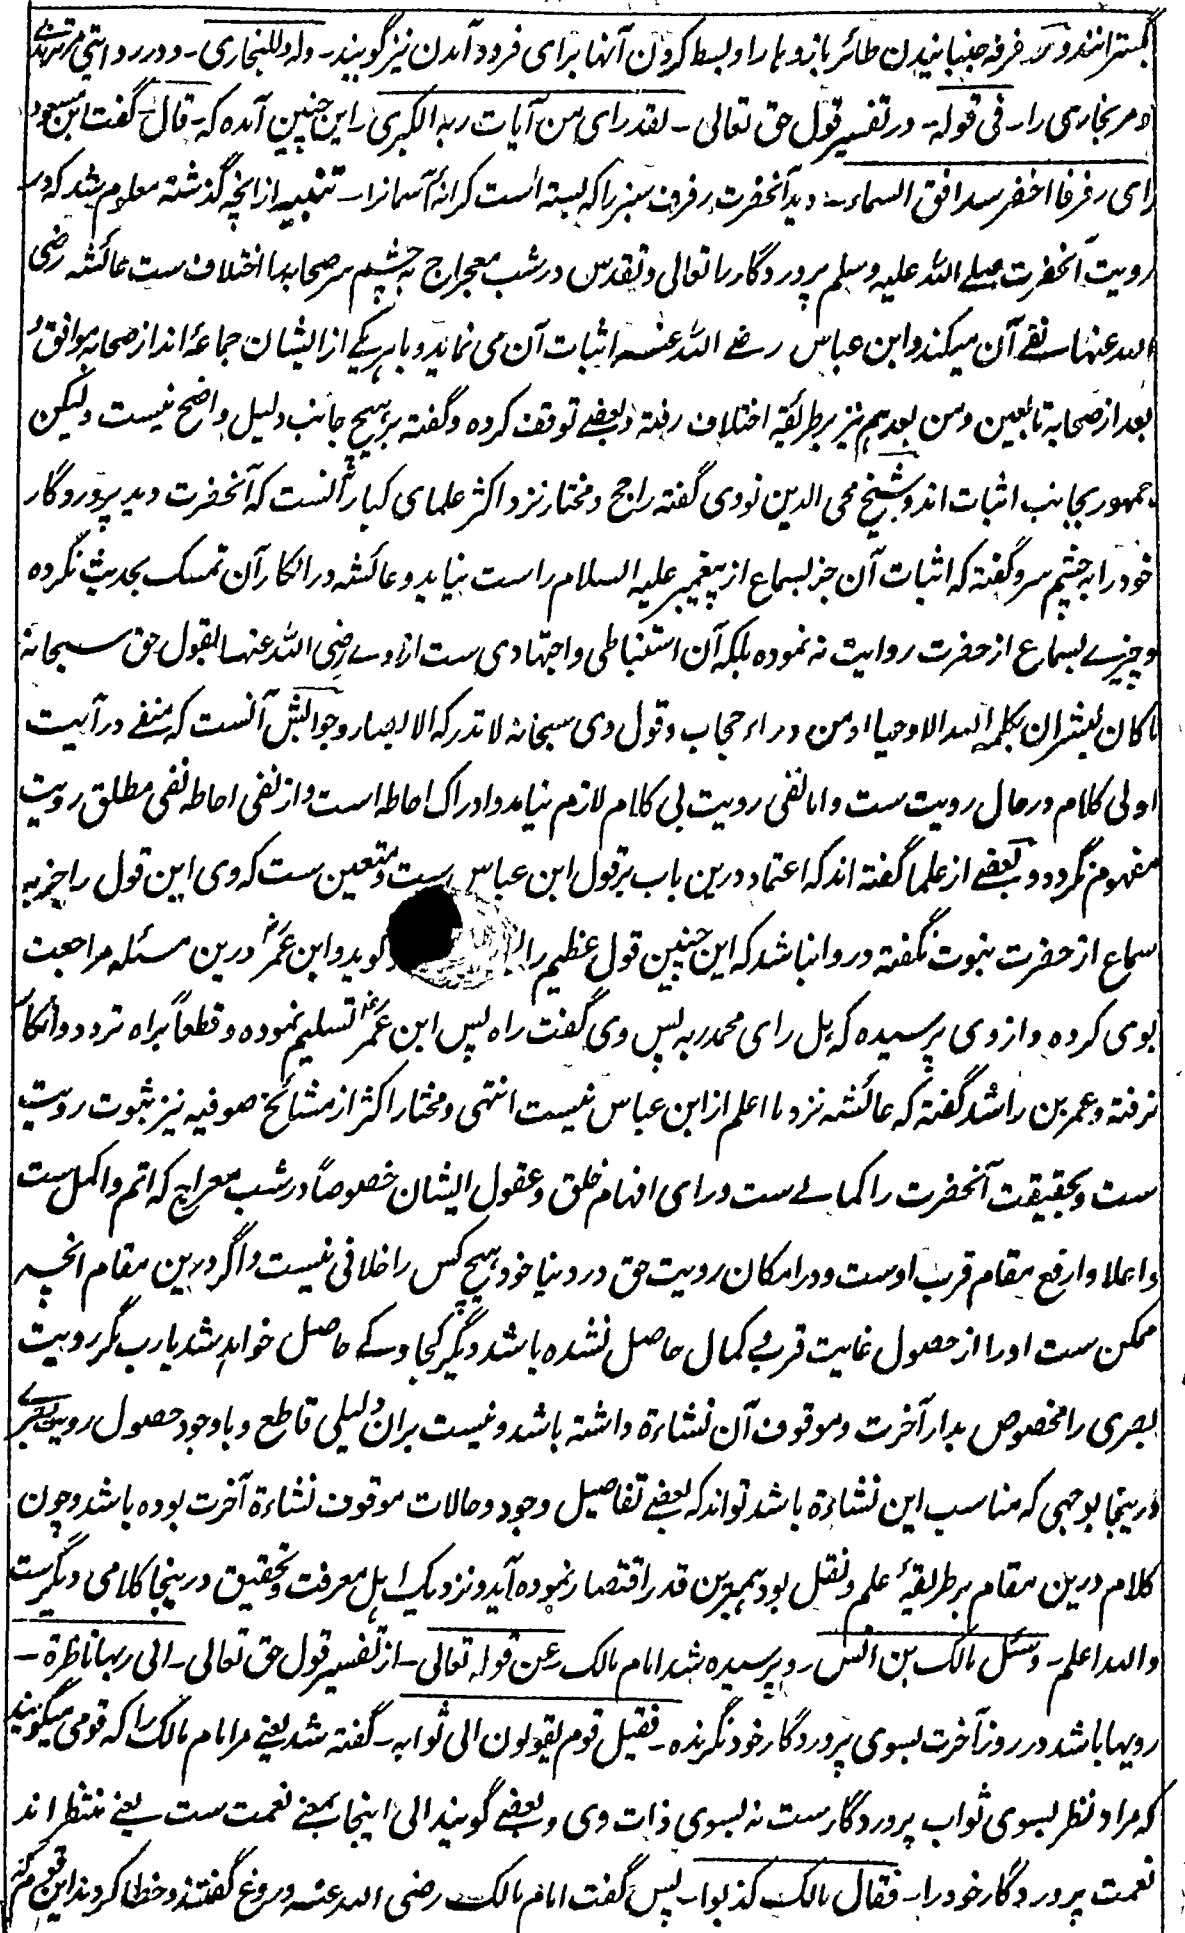 بگسترانند و رفرفه جنبانیدن طائر بازوها را و بسط کردن آنها برای فرود آمدن نیز گویند ۔ وله وللبخاری ۔ و در روایتی مر ترمذی
و مر بخاری را ۔ فی قوله ۔ در تفسیر قول حق تعالی ۔ لقد رای من آیات ربه الکبری ۔ این چنین آمده که ۔ قال ۔ گفت ابن مسعود
رای رفرفا اخضر سد افق السماء ۔ دید آنحضرت رفرف سبز را که بسته است کرانهٔ آسمانرا ۔ تنبیه ازانچه گذشته معلوم شد که در
رویت آنحضرت صلے الله علیه وسلم پروردگار را تعالی و تقدس در شب معراج به چشم سر صحابه را اختلاف ست عائشه رضی
الله عنها نفے آن میکند و ابن عباس رضے الله عنه اثبات آن می نماید و با هر یکے از ایشان جماعهٔ اند از صحابه موافق و
بعد از صحابه تابعین و من بعدهم نیز بر طریقهٔ اختلاف رفته و بعضے توقف کرده و گفته بر هیچ جانب دلیل واضح نیست و لیکن
جمهور بجانب اثبات اند و شیخ محی الدین نووی گفته راجح و مختار نزد اکثر علمای کبار آنست که آنحضرت دید پروردگار
خود را به چشم سر و گفته که اثبات آن جز بسماع از پیغمبر علیه السلام راست نیاید و عائشه در انکار آن تمسک بحدیث نکرده
و چیزے بسماع از حضرت روایت نه نموده بلکه آن استنباطی و اجتهادی ست از وے رضی الله عنها بقول حق سبحانه
ما کان لبشر ان یکلمه الله الا وحیا او من وراء حجاب و قول وی سبحانه لا تدرکه الابصار و جوابش آنست که منفے در آیت
اولی کلام در حال رویت ست و اما نفی رویت بی کلام لازم نیاید و ادراک احاطه است و از نفی احاطه نفی مطلق رویت
مفهوم نگردد و بعضے از علما گفته اند که اعتماد درین باب بر قول ابن عباس ست و متعین ست که وی این قول را جز به
سماع از حضرت نبوت نگفته و روا نباشد که این چنین قول عظیم را گوید و ابن عمر درین مسئله مراجعت
بوی کرده و از وی پرسیده که هل رای محمد ربه پس وی گفت راه پس ابن عمر تسلیم نموده و قطعاً براه تردد و انکار
نرفته و عمر بن راشد گفته که عائشه نزد ما اعلم از ابن عباس نیست انتهی و مختار اکثر از مشائخ صوفیه نیز ثبوت رویت
ست و بحقیقت آنحضرت را کمالے ست ورای افهام خلق و عقول ایشان خصوصاً در شب معراج که اتم و اکمل ست
و اعلا و ارفع مقام قرب اوست و در امکان رویت حق در دنیا خود هیچ کس را خلافی نیست و اگر درین مقام انچه
ممکن ست او را از حصول غایت قربی کمال حاصل نشده باشد دیگر کجا و کے حاصل خواهد شد یا رب مگر رویت
بصری را مخصوص بدار آخرت و موقوف آن نشاءة داشته باشد و نیست بران دلیلی قاطع و با وجود حصول رویت بصرے
درینجا بوجهی که مناسب این نشاءة باشد تواند که بعضے تفاصیل وجود و حالات موقوف نشاءة آخرت بوده باشد و چون
کلام درین مقام بر طریقهٔ علم و نقل بود همبرین قدر اقتصار نموده آید و نزدیک اهل معرفت و تحقیق درینجا کلامی دیگرست
والله اعلم ۔ وسئل مالک بن انس ۔ و پرسیده شد امام مالک ۔ عن قوله تعالی ۔ از تفسیر قول حق تعالی ۔ الی ربها ناظرة ۔
رویها باشد در روز آخرت بسوی پروردگار خود نگرنده ۔ فقیل قوم یقولون الی ثوابه ۔ گفته شد یعنے مر امام مالک را که قومی میگویند
که مراد نظر بسوی ثواب پروردگار ست نه بسوی ذات وی و بعضے گویند الی اینجا بمعنے نعمت ست یعنے منتظر اند
نعمت پروردگار خود را ۔ فقال مالک کذبوا ۔ پس گفت امام مالک رضی الله عنه دروغ گفتند و خطا کردند این قوم